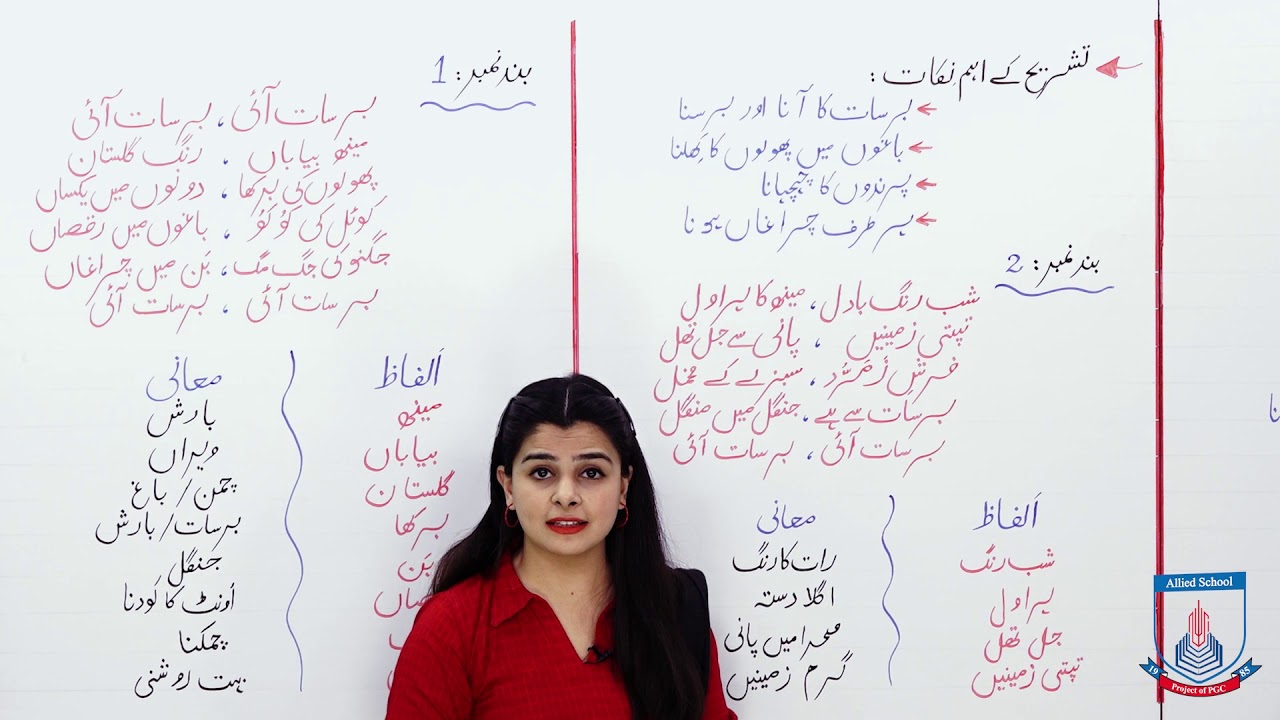 تشریح کے اہم نکات :
برسات کا آنا اور برسنا
باغوں میں پھولوں کا کِھلنا
پرندوں کا چہچہانا
ہر طرف چراغاں ہونا
بند نمبر : 2
شب رنگ بادل ، مینھ کا ہراول
تپتی زمینیں ، پانی سے جل تھل
فرشِ زُمرُّد ، سبزے کے مخمل
برسات سے ہے ، جنگل میں منگل
برسات آئی ، برسات آئی
اَلفاظ معانی
شب رنگ رات کا رنگ
ہراول اگلا دستہ
جل تھل صحرا میں پانی
تپتی زمینیں گرم زمینیں
بند نمبر : 1
برسات آئی ، برسات آئی
مینھ بیاباں ، رنگ گلستان
پھولوں کی برکھا ، دونوں میں یکساں
کوئل کی کُو کُو ، باغوں میں رقصاں
جگنو کی جگ مگ ، بَن میں چراغاں
برسات آئی ، برسات آئی
اَلفاظ معانی
مینھ بارش
بیاباں ویراں
گلستان چمن / باغ
برکھا برسات / بارش
بَن جنگل
اُونٹ کا کَودنا
چمکنا
بہت روشنی
Allied School
19 85
Project of PGC